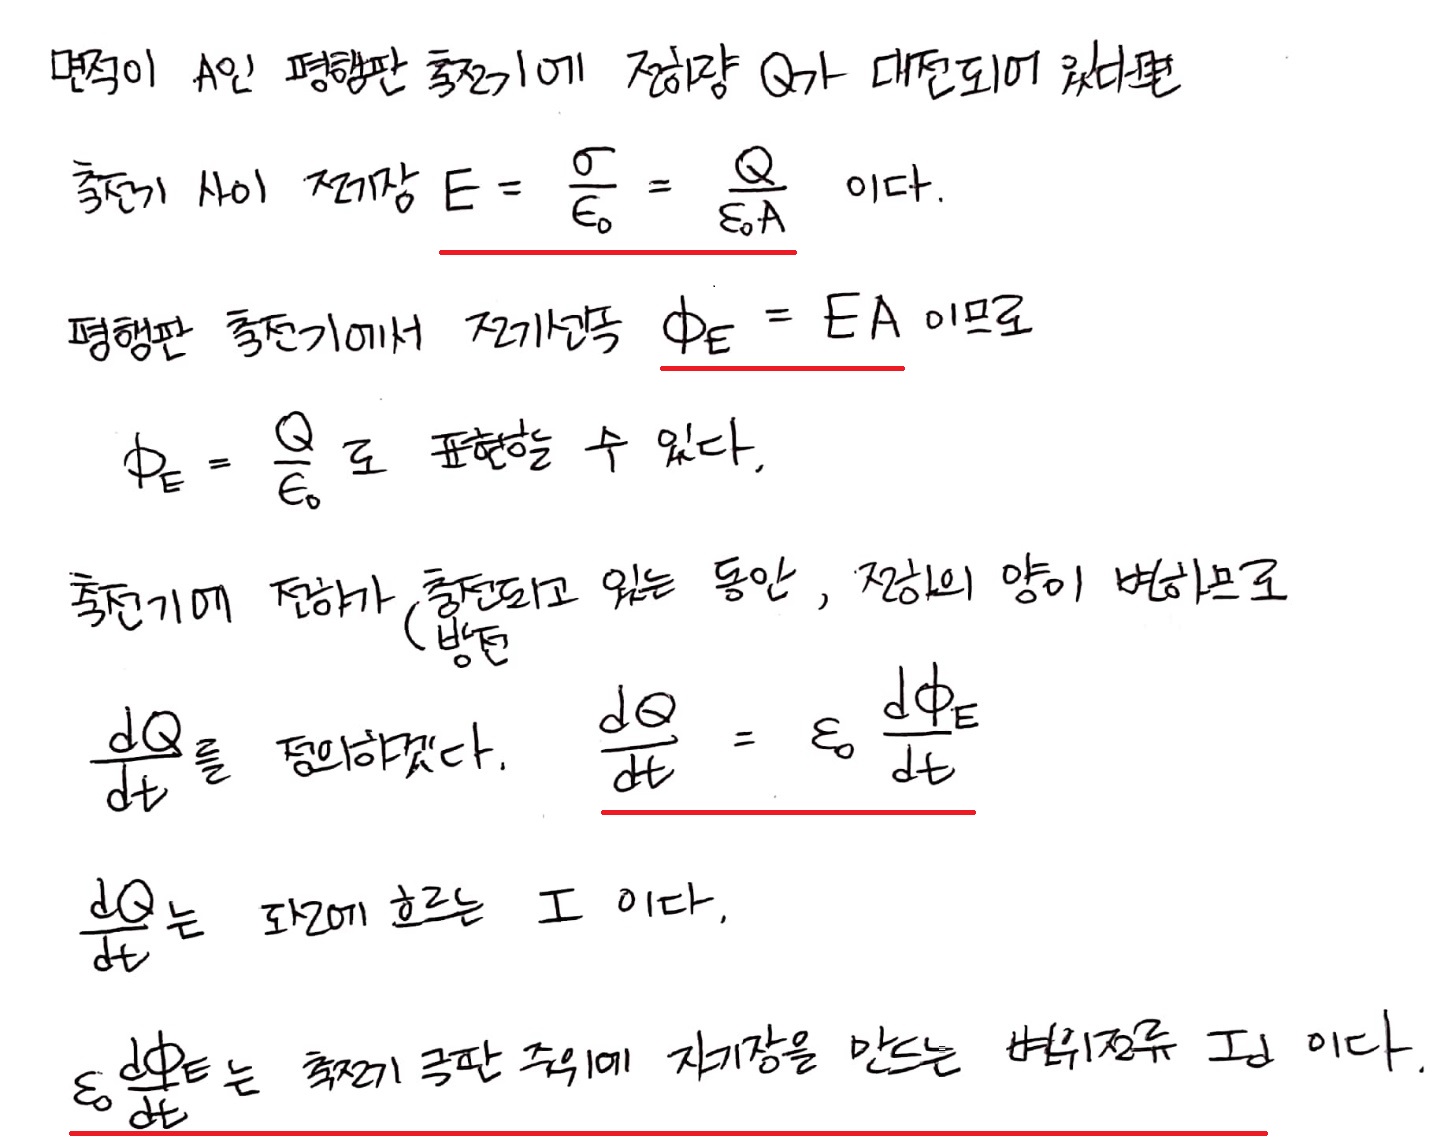 면적이 A인 평행판 축전기에 전하량 Q가 대전되어 있다면
축전기 사이 전기장 E = σ/ε₀ = Q/ε₀A 이다.
평행판 축전기에서 전기선속 ΦE = EA 이므로
ΦE = Q/ε₀ 로 표현할 수 있다.
축전기에 전하가 (충전되고 있는 동안, 전하의 양이 변하므로
방전
dQ/dt 를 정의하겠다. dQ/dt = ε₀ dΦE/dt
dQ/dt 는 도선에 흐르는 I 이다.
ε₀ dΦE/dt 는 축전기 극판 주위에 자기장을 만드는 변위전류 Id 이다.